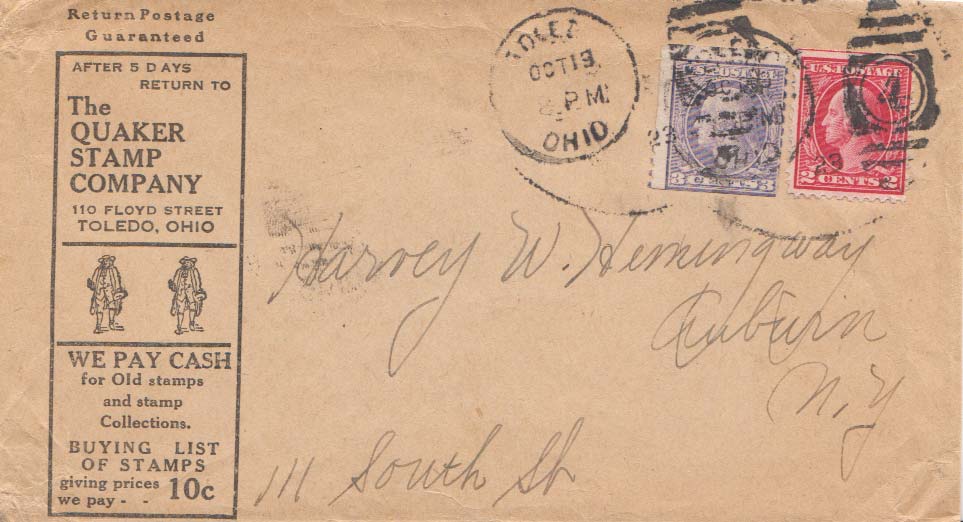 Return Postage
Guaranteed
AFTER 5 DAYS
RETURN TO
The
QUAKER
STAMP
COMPANY
110 FLOYD STREET
TOLEDO, OHIO
WE PAY CASH
for Old stamps
and stamp
Collections.
BUYING LIST
OF STAMPS
giving prices
we pay - - 10c
OCT 13
P.M.
OHIO
U.S. POSTAGE
3 CENTS 3
U.S. POSTAGE
2 CENTS 2
OHIO
Harvey W. Hemingway
Auburn
N.Y
111 South St